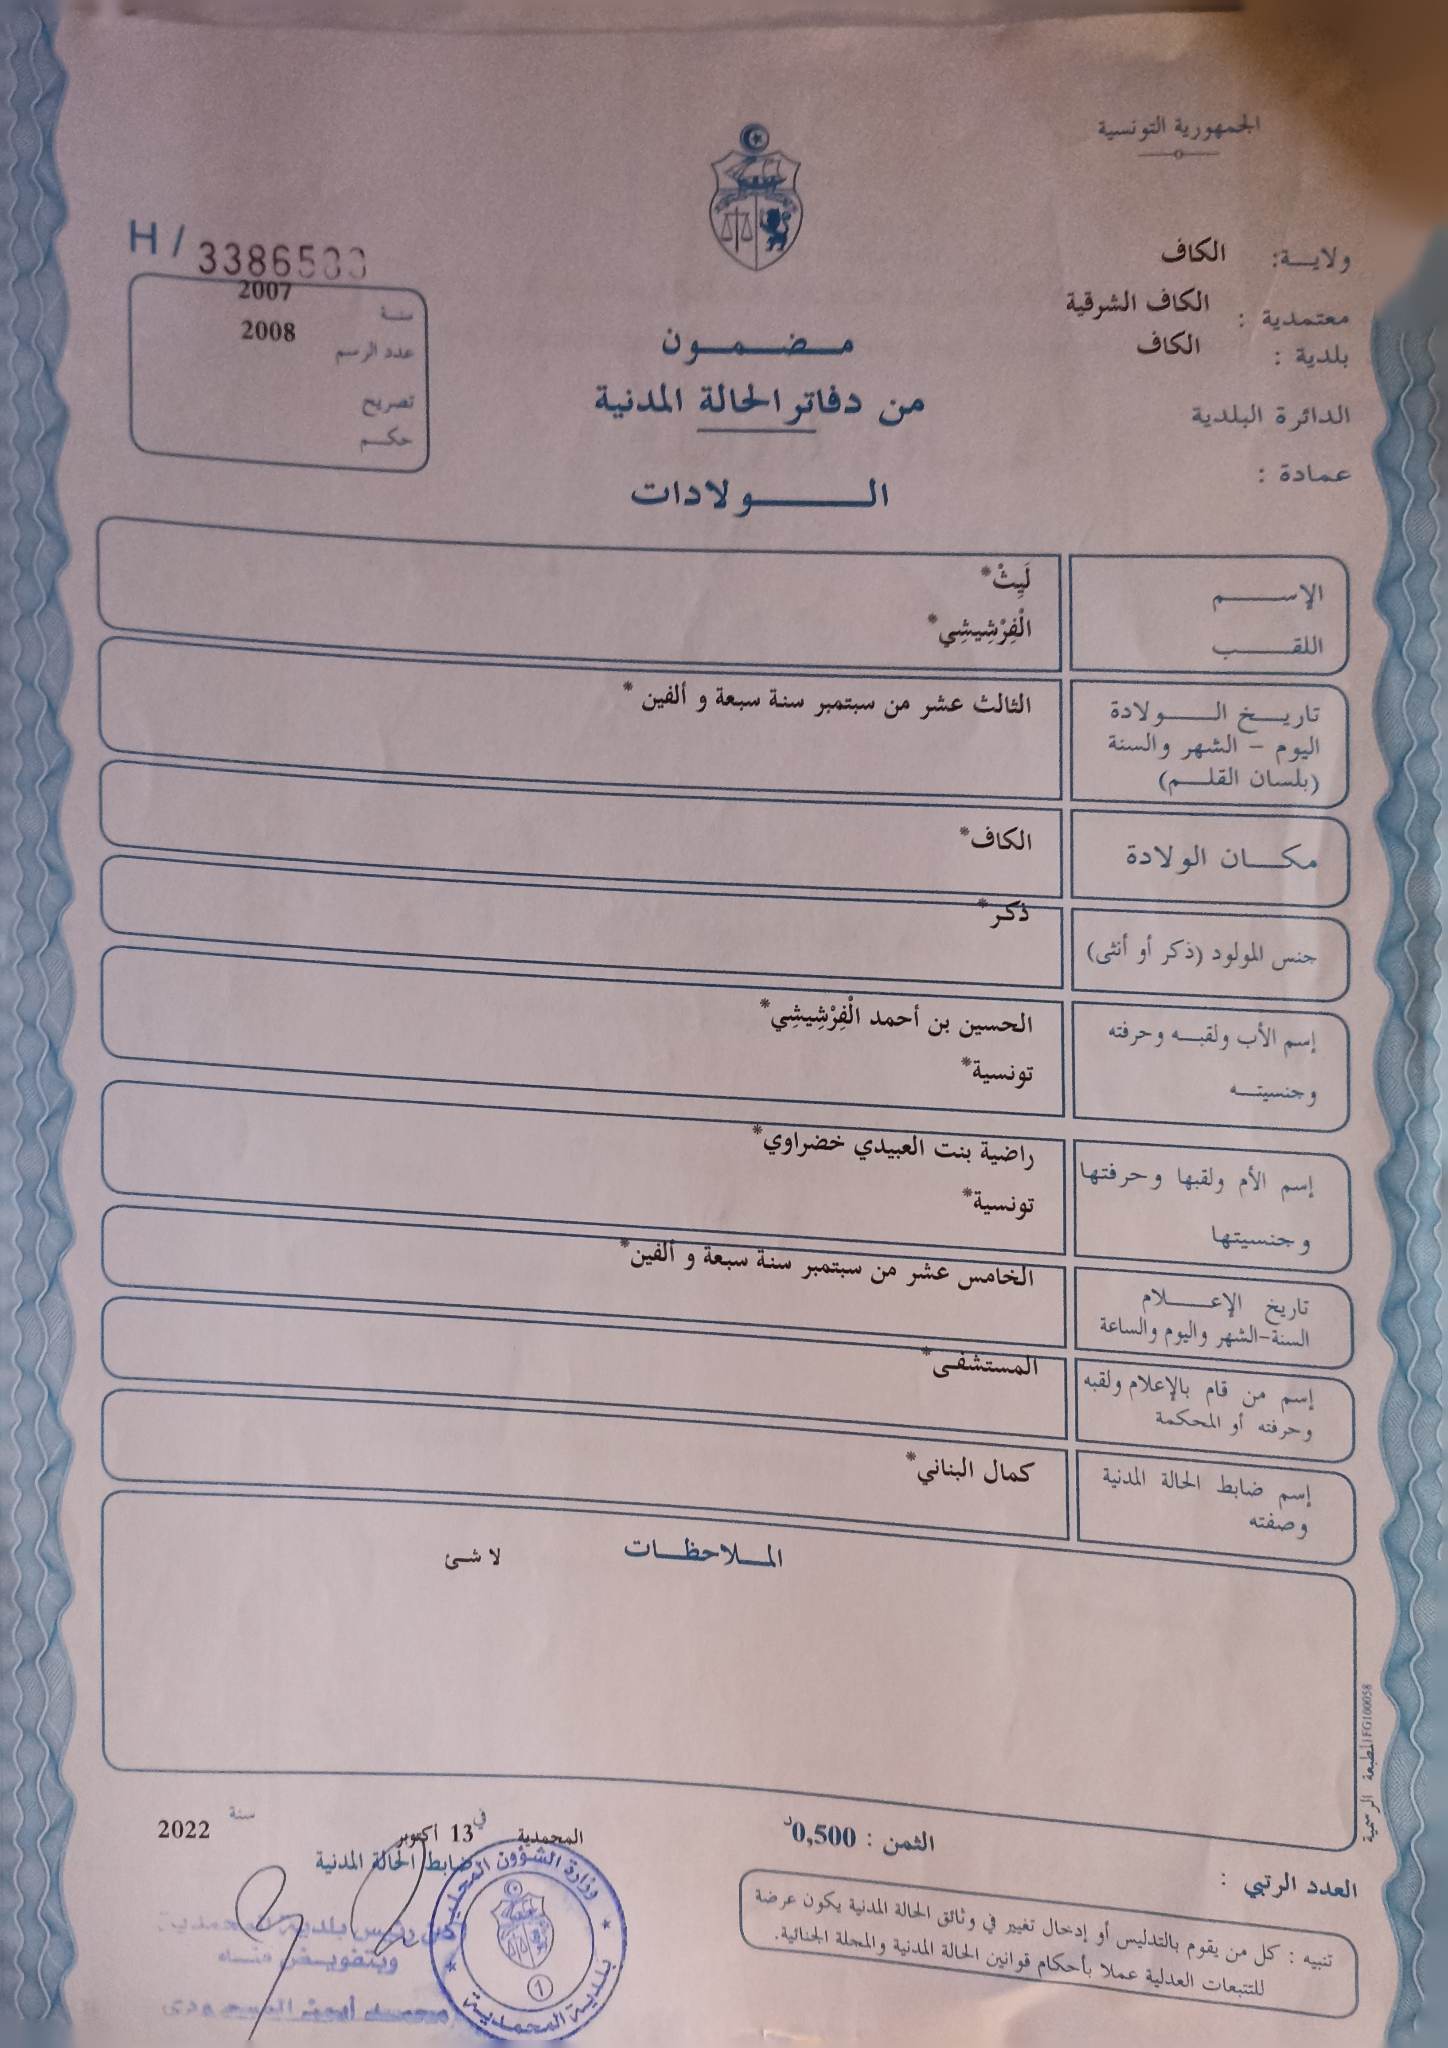 الجمهورية التونسية
ولايـــة: الكاف
معتمدية : الكاف الشرقية
بلدية : الكاف
الدائرة البلدية
عمادة :
H / 3386500
سنة 2007
عدد الرسم 2008
تصريح
حكـم
مـــضـــمـــون
من دفاتر الحالة المدنية
الــــــولادات
الإســـــم لَيِثْ*
اللقـــــب الْفِرْشِيشِي*
تاريـــخ الـــــولادة الثالث عشر من سبتمبر سنة سبعة و ألفين *
اليوم - الشهر والسنة
(بلسان القلــم)
مكـــان الولادة الكاف*
جنس المولود (ذكر أو أنثى) ذكر*
إسم الأب ولقبـــه وحرفته الحسين بن أحمد الْفِرْشِيشِي*
وجنسيتـــه تونسية*
إسم الأم ولقبها وحرفتها راضية بنت العبيدي خضراوي*
وجنسيتها تونسية*
تاريخ الإعـــــلام الخامس عشر من سبتمبر سنة سبعة و ألفين*
السنة-الشهر واليوم والساعة
إسم من قام بالإعلام ولقبه المستشفى*
وحرفته أو المحكمة
إسم ضابط الحالة المدنية كمال البناني*
وصفته
المـــلاحظـــات لا شئ
المطبعة الرسمية IFG100058
الثمن : 0,500د
المحمدية في 13 أكتوبر سنة 2022
ضابط الحالة المدنية
العدد الرتبي :
تنبيه : كل من يقوم بالتدليس أو إدخال تغيير في وثائق الحالة المدنية يكون عرضة
للتتبعات العدلية عملا بأحكام قوانين الحالة المدنية والمجلة الجنائية.
وزارة الشؤون المحلية
بلدية المحمدية
1
رئيس بلدية المحمدية
وبتفويض منه
محمد